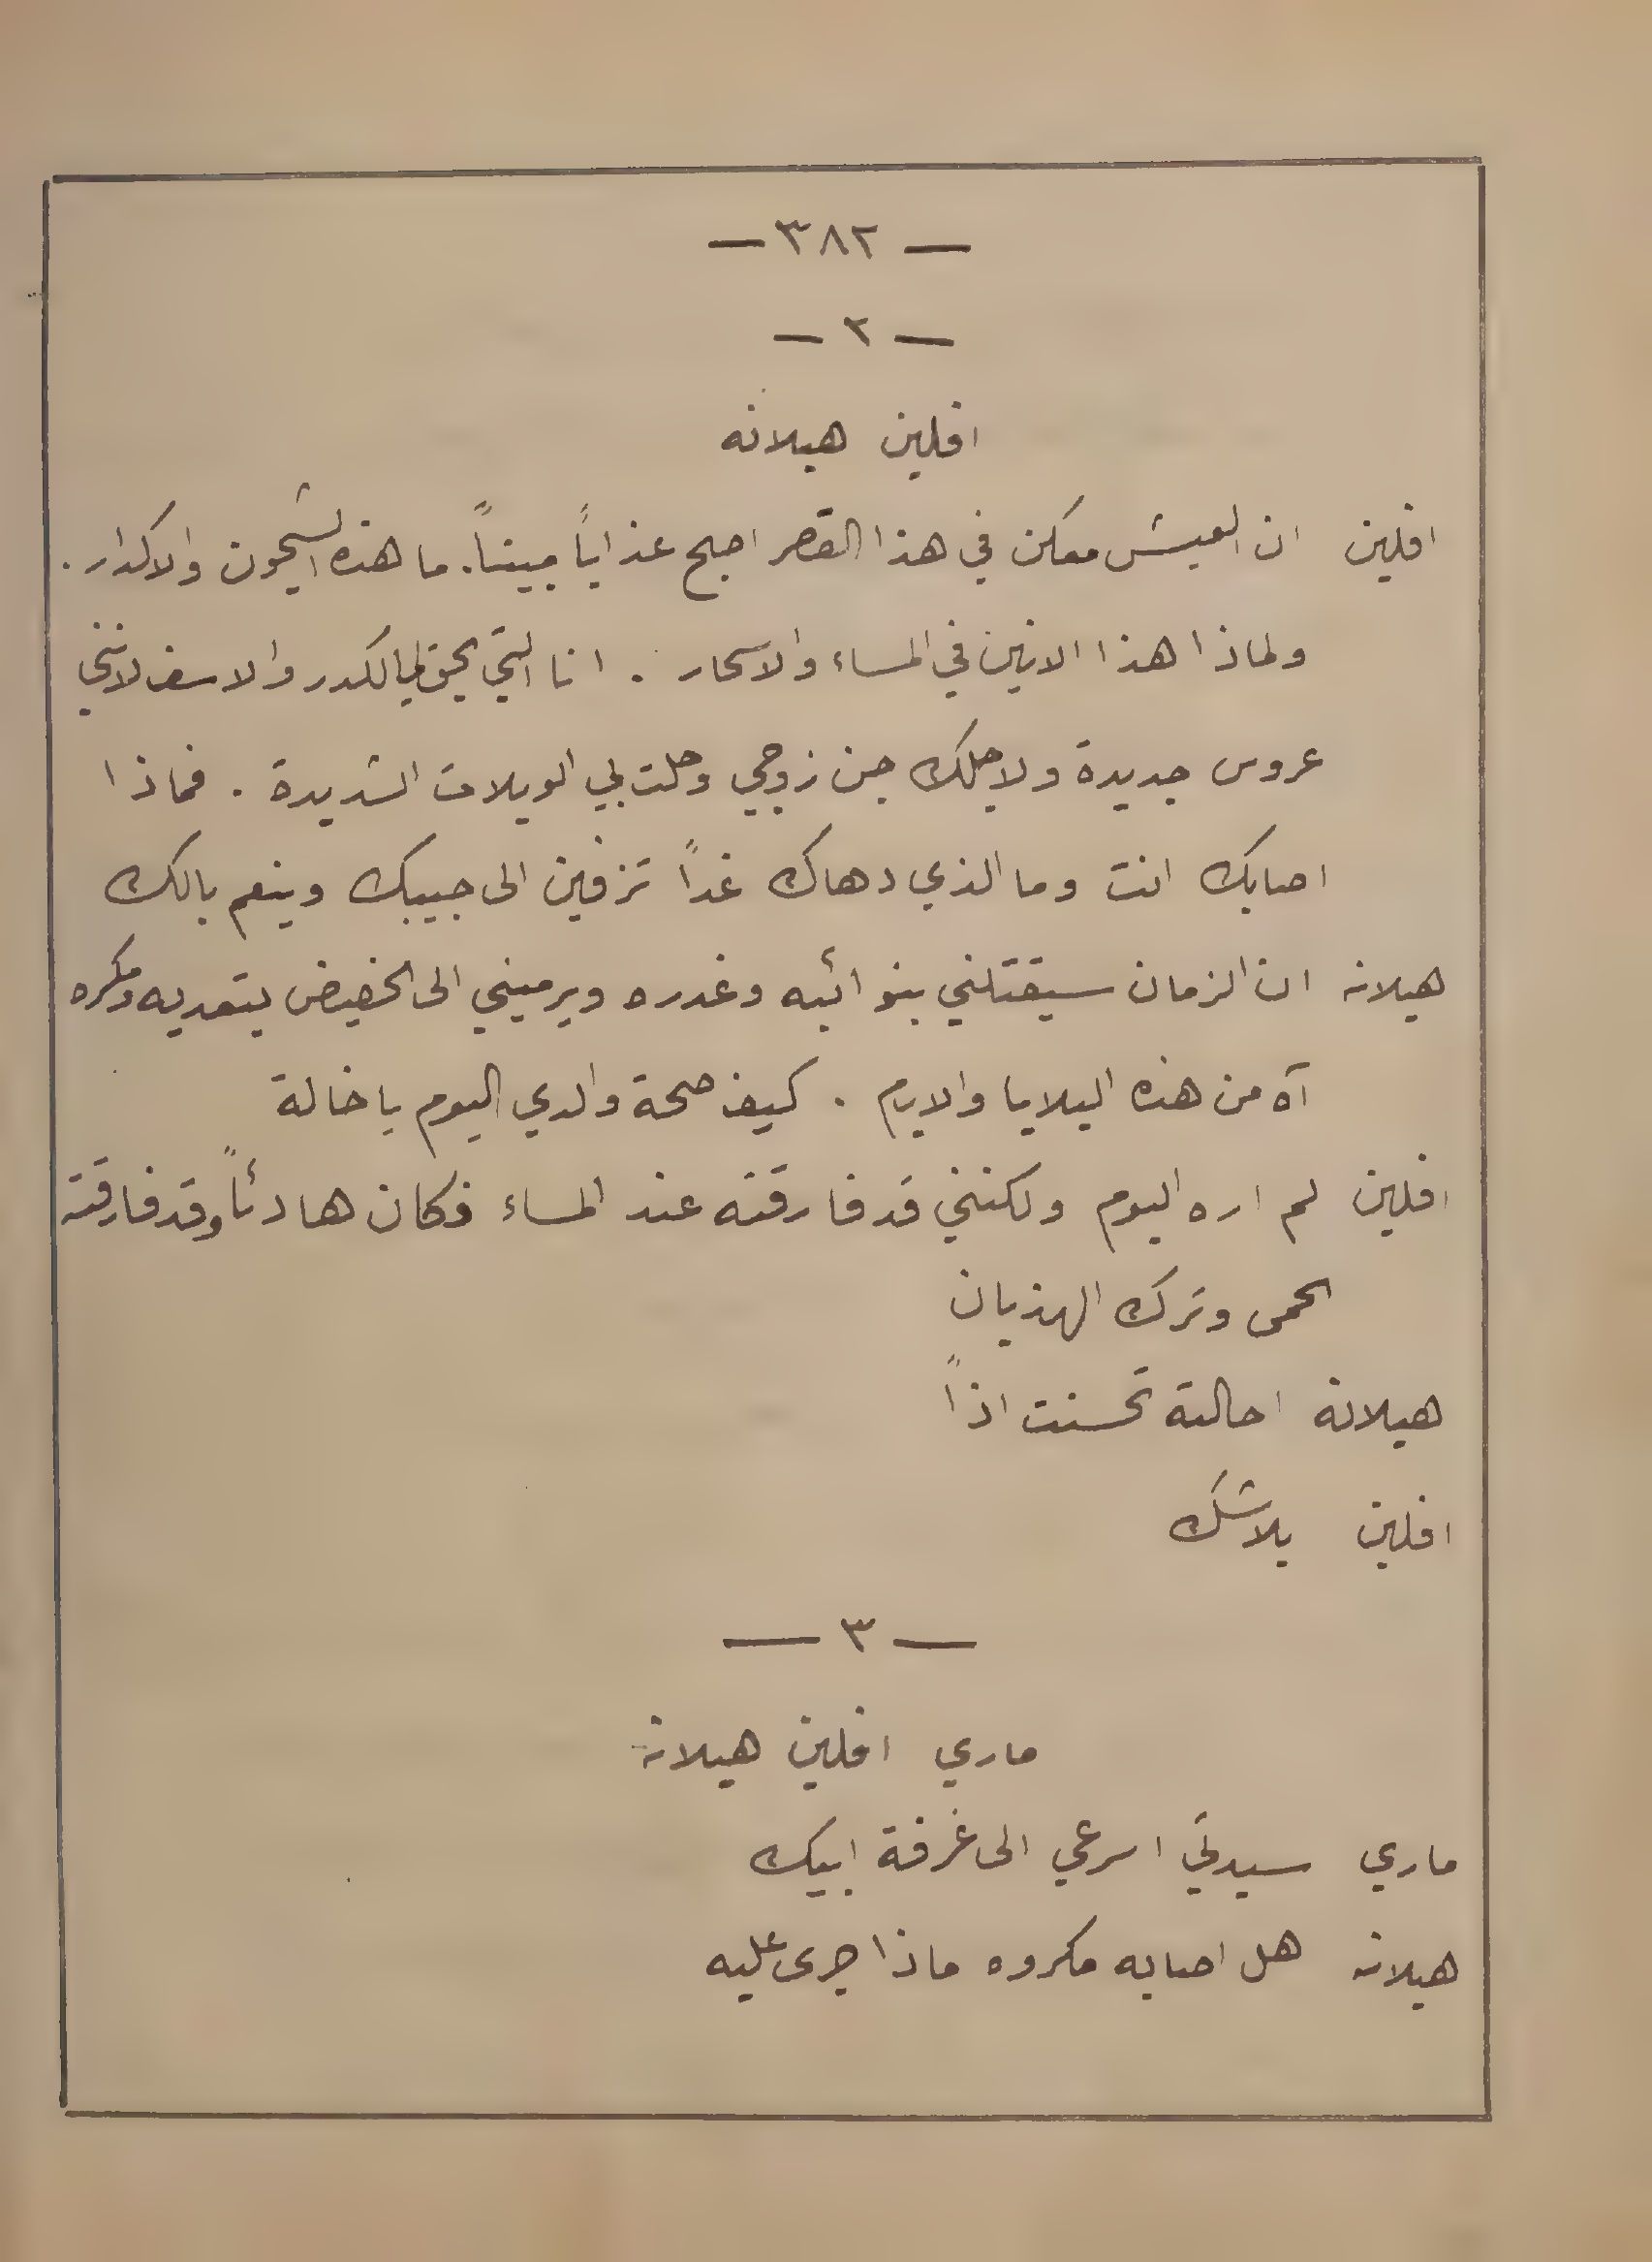 — ٣٨٢ —
— ٢ —
افلين هيلانه
افلين ان العيش معكن في هذا القصر اصبح عذاباً مبيناً. ما هذه الشجون والاكدار .
ولماذا هذا الانين في المساء والاسحار . انا التي يحق لي الكدر والاسف لانني
عروس جديدة ولاجلك جن زوجي وحلت بي الويلات الشديدة . فماذا
اصابك انت وما الذي دهاك غداً تزفين الى حبيبك وينعم بالك
هيلانه ان الزمان سيقتلني بنوائبه وغدره ويرميني الى الحضيض بتعديه ومكره
آه من هذه البلايا والايام . كيف صحة والدي اليوم يا خالة
افلين لم اره اليوم ولكنني قد فارقته عند المساء فكان هادئاً وقد فارقته
الحمى وترك الهذيان
هيلانة احالته تحسنت اذاً
افلين بلا شك
— ٣ —
ماري افلين هيلانه
ماري سيدتي اسرعي الى غرفة ابيك
هيلانه هل اصابه مكروه ماذا جرى عليه